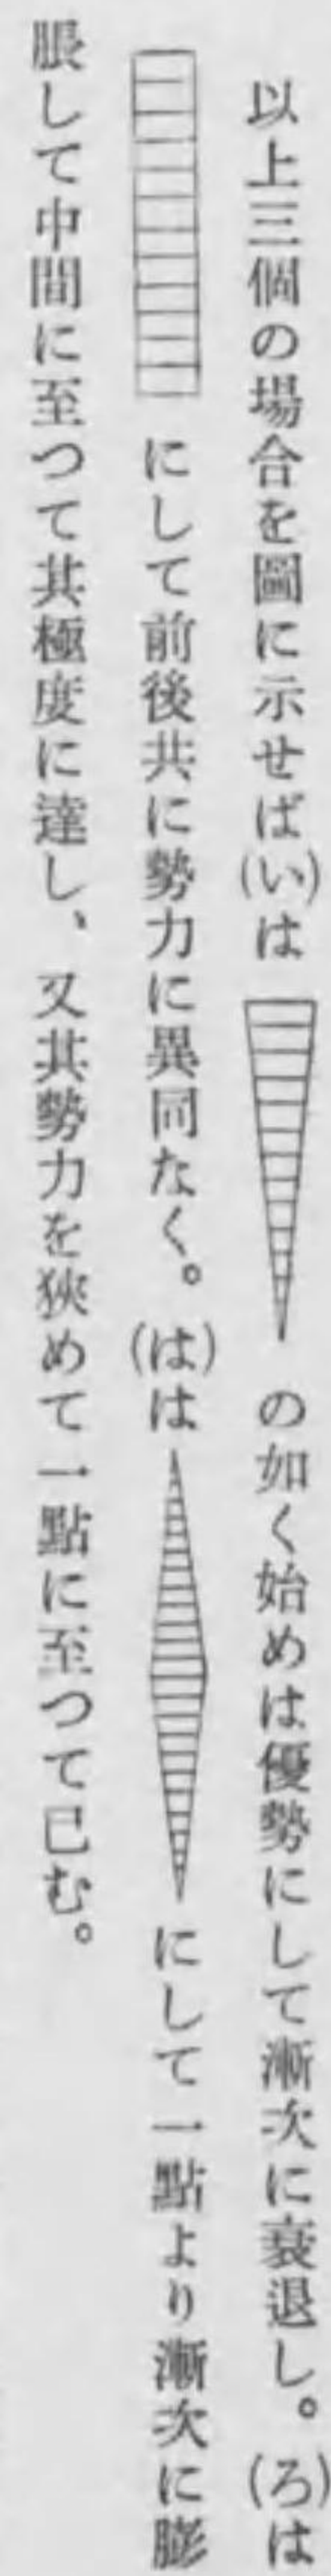 以上三個の場合を圖に示せば(い)はの如く始めは優勢にして漸次に衰退し。(ろ)は
にして前後共に勢力に異同なく。(は)はにして一點より漸次に膨
脹して中間に至つて其極度に達し、又其勢力を狹めて一點に至つて已む。